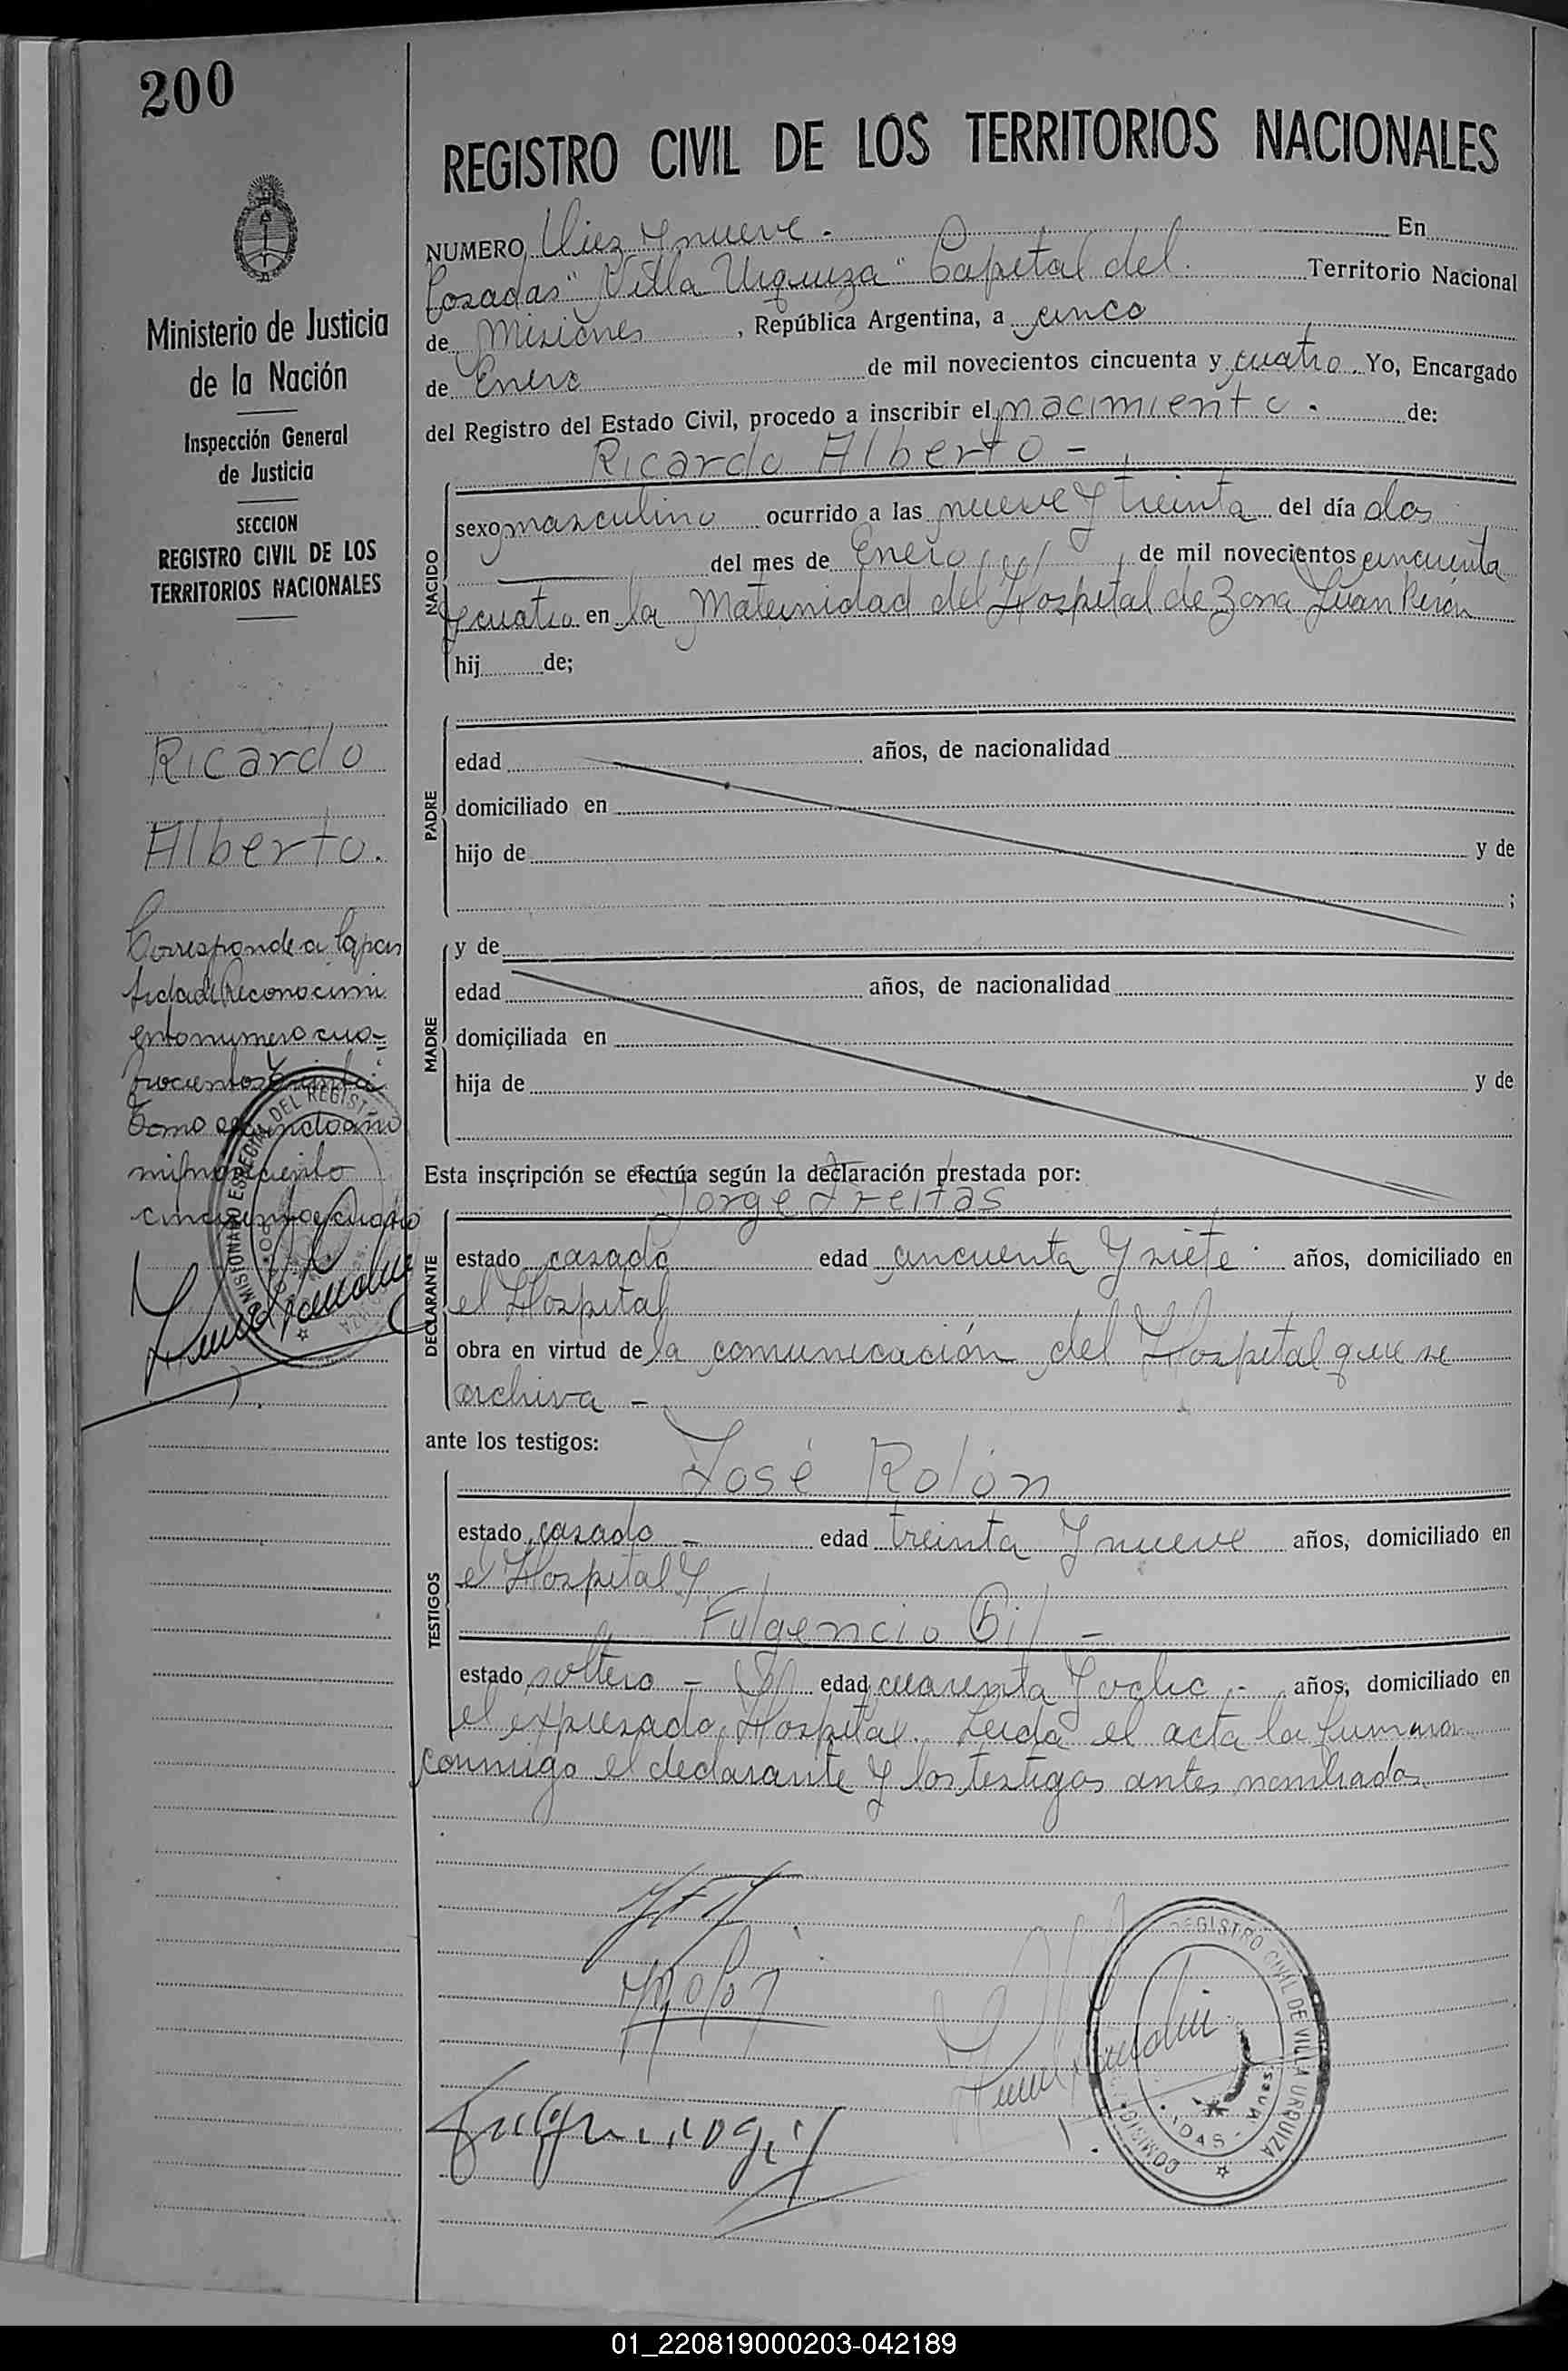 200
REGISTRO CIVIL DE LOS TERRITORIOS NACIONALES
Ministerio de Justicia
de la Nación
Inspección General
de Justicia
SECCION
REGISTRO CIVIL DE LOS
TERRITORIOS NACIONALES
Ricardo
Alberto.
Corresponde a la par
tida de Reconocimi
ento numero cua=
trocientos
Tomo segundo año
mil novecientos
cincuenta y cuatro
NUMERO Diez y nueve . En
Posadas "Villa Urquiza" Capital del Territorio Nacional
de Misiones , República Argentina, a cinco
de Enero de mil novecientos cincuenta y cuatro . Yo, Encargado
del Registro del Estado Civil, procedo a inscribir el nacimiento . de:
Ricardo Alberto -
NACIDO
sexo masculino ocurrido a las nueve y treinta del día dos
del mes de Enero de mil novecientos cincuenta
y cuatro en la Maternidad del Hospital de Zona Juan Perón
hij de;
PADRE
edad años, de nacionalidad
domiciliado en
hijo de y de
;
MADRE
y de
edad años, de nacionalidad
domiciliada en
hija de y de
Esta inscripción se efectúa según la declaración prestada por:
Jorge Freitas
DECLARANTE
estado casado edad cincuenta y siete años, domiciliado en
el Hospital
obra en virtud de la comunicación del Hospital que se
archiva -
ante los testigos:
José Rolón
TESTIGOS
estado casado - edad treinta y nueve años, domiciliado en
el Hospital y
Fulgencio Gil -
estado soltero - edad cuarenta y ocho - años, domiciliado en
el expresado Hospital. Leida el acta la firmaron
conmigo el declarante y los testigos antes nombrados.
REGISTRO CIVIL DE VILLA URQUIZA
01_220819000203-042189